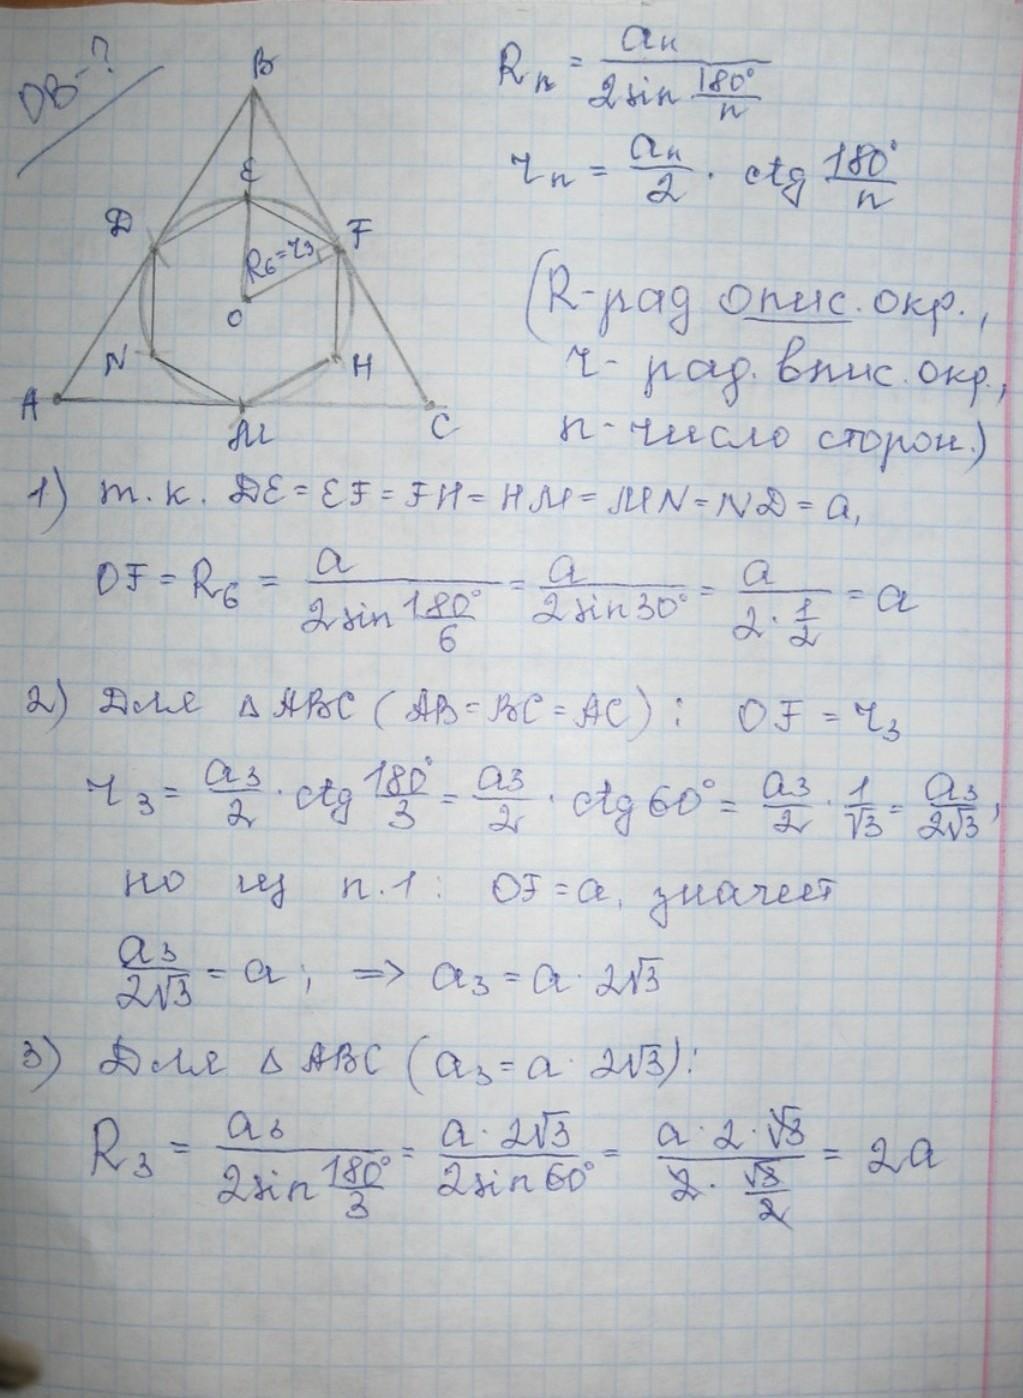 OB-?
B
E
D
F
R₆=r₃
O
N
H
A
M
C
Rₙ = aₙ / (2 sin 180°/n)
rₙ = aₙ/2 · ctg 180°/n
(R-рад опис. окр.,
r- рад. впис. окр.,
n- число сторон.)
1) т.к. DE=EF=FH=HM=MN=ND=a,
OF=R₆ = a / (2 sin 180°/6) = a / (2 sin 30°) = a / (2·1/2) = a
2) Для △ABC (AB=BC=AC): OF=r₃
r₃ = a₃/2 · ctg 180°/3 = a₃/2 · ctg 60° = a₃/2 · 1/√3 = a₃/2√3,
но из п.1: OF=a, значит
a₃/2√3 = a; => a₃=a·2√3
3) Для △ABC (a₃=a·2√3):
R₃ = a₃ / (2 sin 180°/3) = a·2√3 / (2 sin 60°) = a·2·√3 / (2·√3/2) = 2a